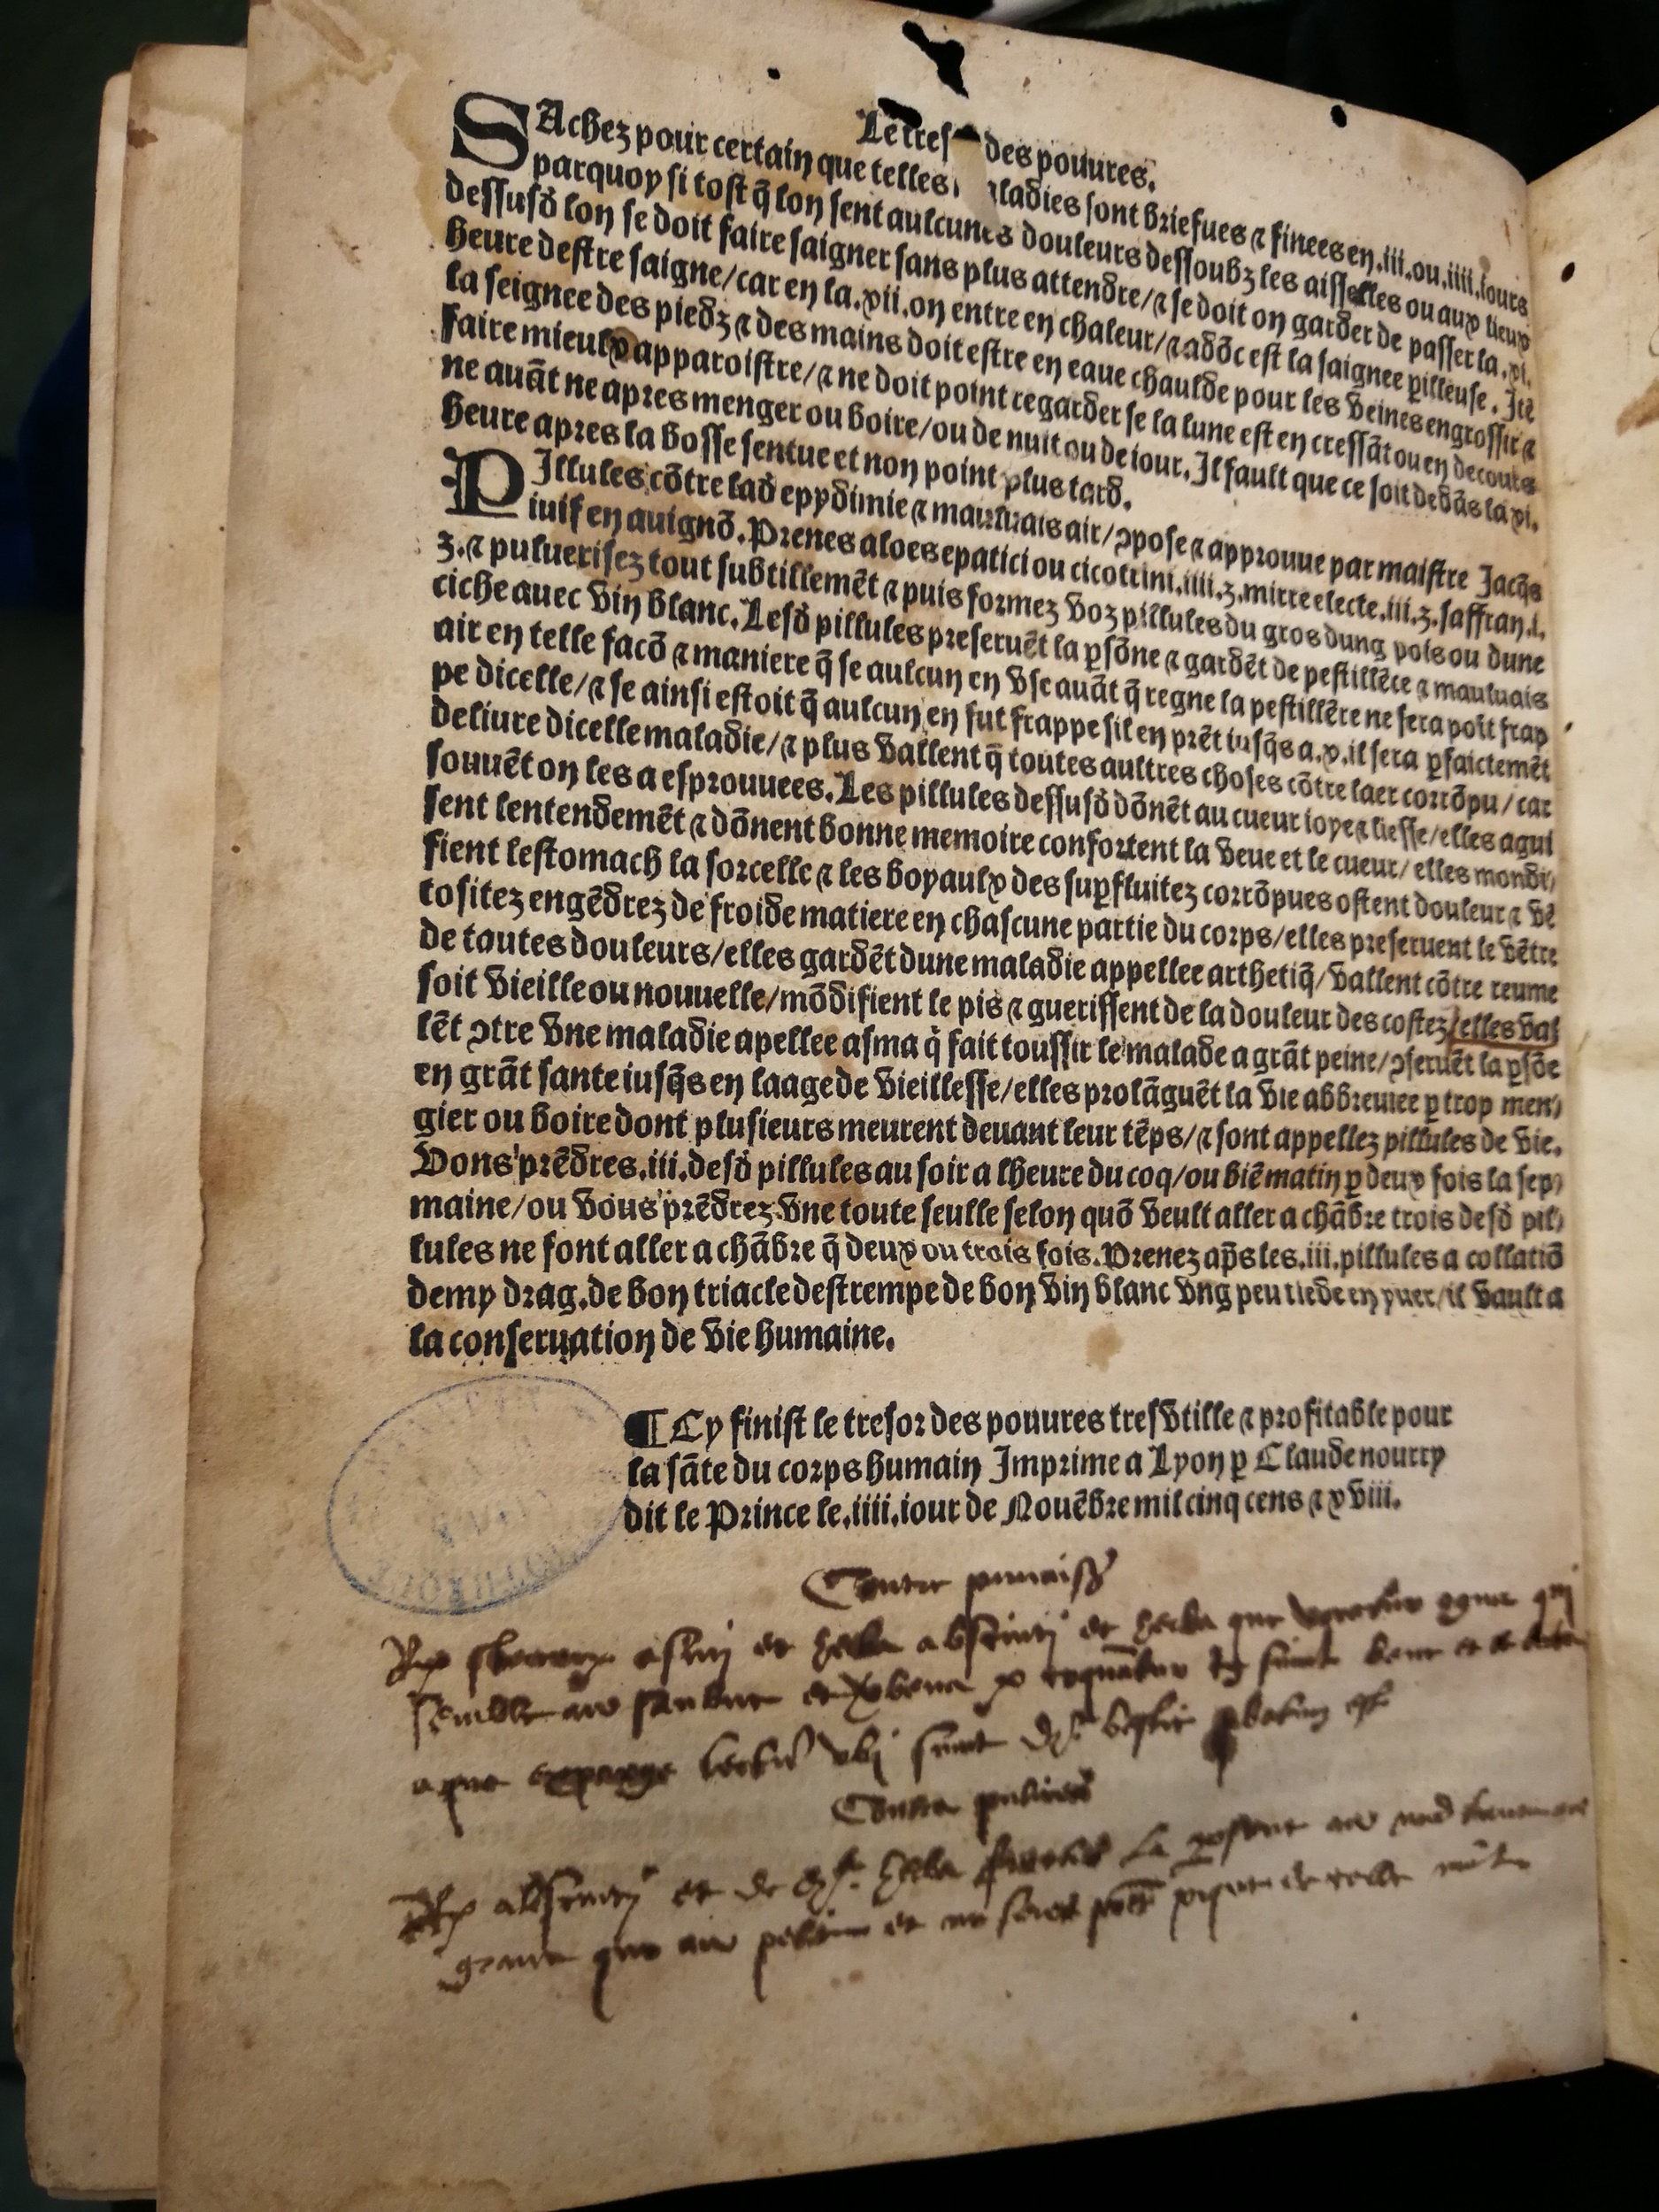 Le tres des pouures.
SAchez pour certain que telles ladies sont briefues ⁊ finees en .iii. ou .iiii. iours
parquoy si tost q̃ lon sent aulcunes douleurs dessoubz les aisselles ou aux lieux
dessusd̕ lon se doit faire saigner sans plus attendre/⁊ se doit on garder de passer la .vi.
heure destre saigne/car en la .vii. on entre en chaleur/⁊ adõc est la saignee ꝑilleuse. Itẽ
la seignee des piedz ⁊ des mains doit estre en eaue chaulde pour les veines engrossir ⁊
faire mieulx apparoistre/⁊ ne doit point regarder se la lune est en cressãt ou en decours
ne auãt ne apres menger ou boire/ou de nuit ou de iour. Il fault que ce soit dedãs la vi.
heure apres la bosse sentue et non point plus tard.
PIllules cõtre lad̕ epydimie ⁊ mauluais air/ ↄpose ⁊ approuue par maistre Jacq̃s
iuif en auignõ. Prenes aloes epatici ou cicotrini .iiii. ʒ. mirre electe .iii. ʒ. saffran .i.
ʒ. ⁊ puluerisez tout subtillemẽt ⁊ puis formez voz pillules du gros dung pois ou dune
ciche auec vin blanc. Lesd̕ pillules preseruẽt la ꝑsõne ⁊ gardẽt de pestillẽce ⁊ mauluais
air en telle facõ ⁊ maniere q̃ se aulcun en vse auãt q̃ regne la pestillẽce ne sera poĩt frap
pe dicelle/⁊ se ainsi estoit q̃ aulcun en fut frappe sil en prẽt iusq̃s a .v. il sera ꝑfaictemẽt
deliure dicelle maladie/⁊ plus vallent q̃ toutes aultres choses cõtre laer corrõpu/ car
souuẽt on les a esprouuees. Les pillules dessusd̕ dõnẽt au cueur ioye ⁊ liesse/elles agui
sent lentendemẽt ⁊ dõnent bonne memoire confortent la veue et le cueur/ elles mondi/
fient lestomach la forcelle ⁊ les boyaulx des suꝑfluitez corrõpues ostent douleur ⁊ vẽ
tositez engẽdrez de froide matiere en chascune partie du corps/elles preseruent le vẽtre
de toutes douleurs/elles gardẽt dune maladie appellee arthetiq̃/vallent cõtre reume
soit vieille ou nouuelle/mõdifient le pis ⁊ guerissent de la douleur des costez/elles val
lẽt ↄtre vne maladie apellee asma q̃ fait toussir le malade a grãt peine/ↄseruẽt la ꝑsõe
en grãt sante iusq̃s en laage de vieillesse/elles prolãguẽt la vie abbreuiee ꝑ trop men/
gier ou boire dont plusieurs meurent deuant leur tẽps/⁊ sont appellez pillules de vie.
Vons prẽdres .iii. desd̕ pillules au soir a lheure du coq/ou biẽ matin ꝑ deux fois la sep/
maine/ou vous prẽdrez vne toute seulle selon quõ veult aller a chãbre trois desd̕ pil/
lules ne font aller a chãbre q̃ deux ou trois fois. Prenez ap̃s les .iii. pillules a collatiõ
demy drag. de bon triacle destrempe de bon vin blanc vng peu tiede en yuer/il vault a
la conseruation de vie humaine.
¶ Cy finist le tresor des pouures tresvtille ⁊ profitable pour
la sãte du corps humain Imprime a Lyon ꝑ Claude nourry
dit le Prince le .iiii. iour de Nouẽbre mil cinq cens ⁊ xviii.
Contre punaises
et herba absintij et herba que
aque lectus vbi sunt
Contra pulices
absintij et de herba